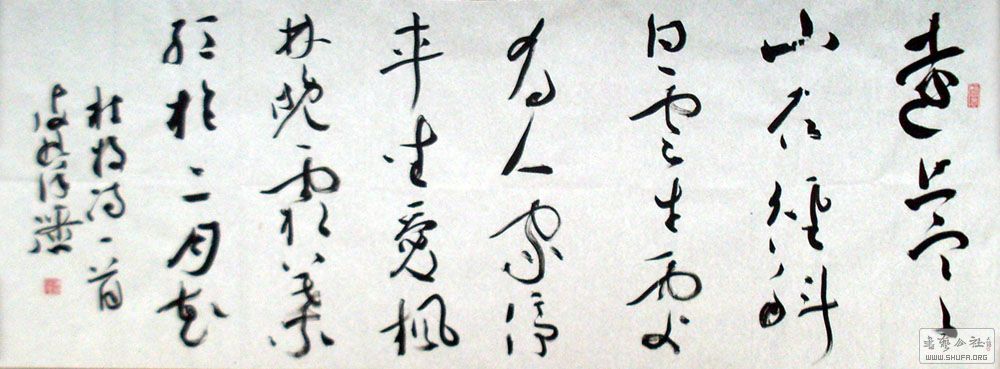 遠上寒
山石徑斜
白雲生處
有人家停
車坐愛楓
林晚霜葉
紅於二月花
杜牧詩一首
書藝公社
WWW.SHUFA.ORG